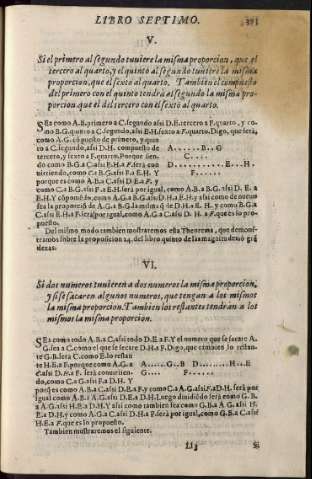 LIBRO SEPTIMO. 393
V.
Si el primero al segundo tuuiere la misma proporcion, que el
tercero al quarto, y el quinto al segundo tuuiere la misma
proporcion, que el sexto al quarto. Tambien el compuesto
del primero con el quinto tendrá al segundo la misma pro-
porcion que el del tercero con el sexto al quarto.
SEa como A.B. primero a C. segundo, assi D.E. tercero a F. quarto, y co-
mo B.G. quinto a C. segundo, assi E.H. sexto a F. quarto. Digo, que será,
como A.G. cõpuesto de primero, y quin
to a C. segundo, assi D.H. compuesto de
tercero, y sexto a F. quarto. Porque sien-
do como B.G. a C. assi E.H. a F. será con
uirtiendo, como C. a B.G. assi F. a E.H. Y
porque es como A.B. a C. assi D.E. a F. y
A......B...G
C....
D.........E...H.
F......
como C. a B.G. assi F. a E.H. será por igual, como A.B. a B.G. assi D.E. a
E.H. Y cõponiẽdo, como A.G. a B.G. assi D.H. a E.H. y assi como de nues-
sea la proporciõ de A.G. a B.G. la misma q̃ de D.H. a E.H. y como B.G. a
C. assi E.H. a F. será por igual, como A.G. a C. assi D.H. a F. que es lo pro-
puesto.
Del mismo modo tambien mostraremos esta Theorema, que demons-
tramos sobre la proposicion 24. del libro quinto de las magnitudes
VI.
Si dos numeros tuuieren a dos numeros la misma proporcion,
y si se sacaren algunos numeros, que tengan a los mismos
la misma proporcion. Tambien los restantes tendran a los
mismos la misma proporcion.
SEa como toda A.B. a C. assi todo D.E. a F. Y el numero que se sacare A.
G. sea a C. como el que se sacare D.H. a F. Digo, que tambien lo restan-
te G.B. será C. como E. lo restan
te H.E. a F. porque como A.G. a
C. assi D.H. a F. será conuirtien-
do, como C. a G. assi F. a D.H. Y
A.....G..B D........H...E
C.... F......
porque es como A.B. a C. assi D.E. a F. y como C. a A.G. assi F. a D.H. será por
igual como A.B. a A.G. assi D.E. a D.H. Luego diuidiẽdo será como G.B.
a A.G. assi H.E. a D.H. Y assi como tambien sea como G.B. a A.G. assi H.
E. a D.H. y como A.G. a C. assi D.H. a F. será por igual, como G.B. a C. assi
H.E. a F. que es lo propuesto.
Tambien mostraremos el siguiente.